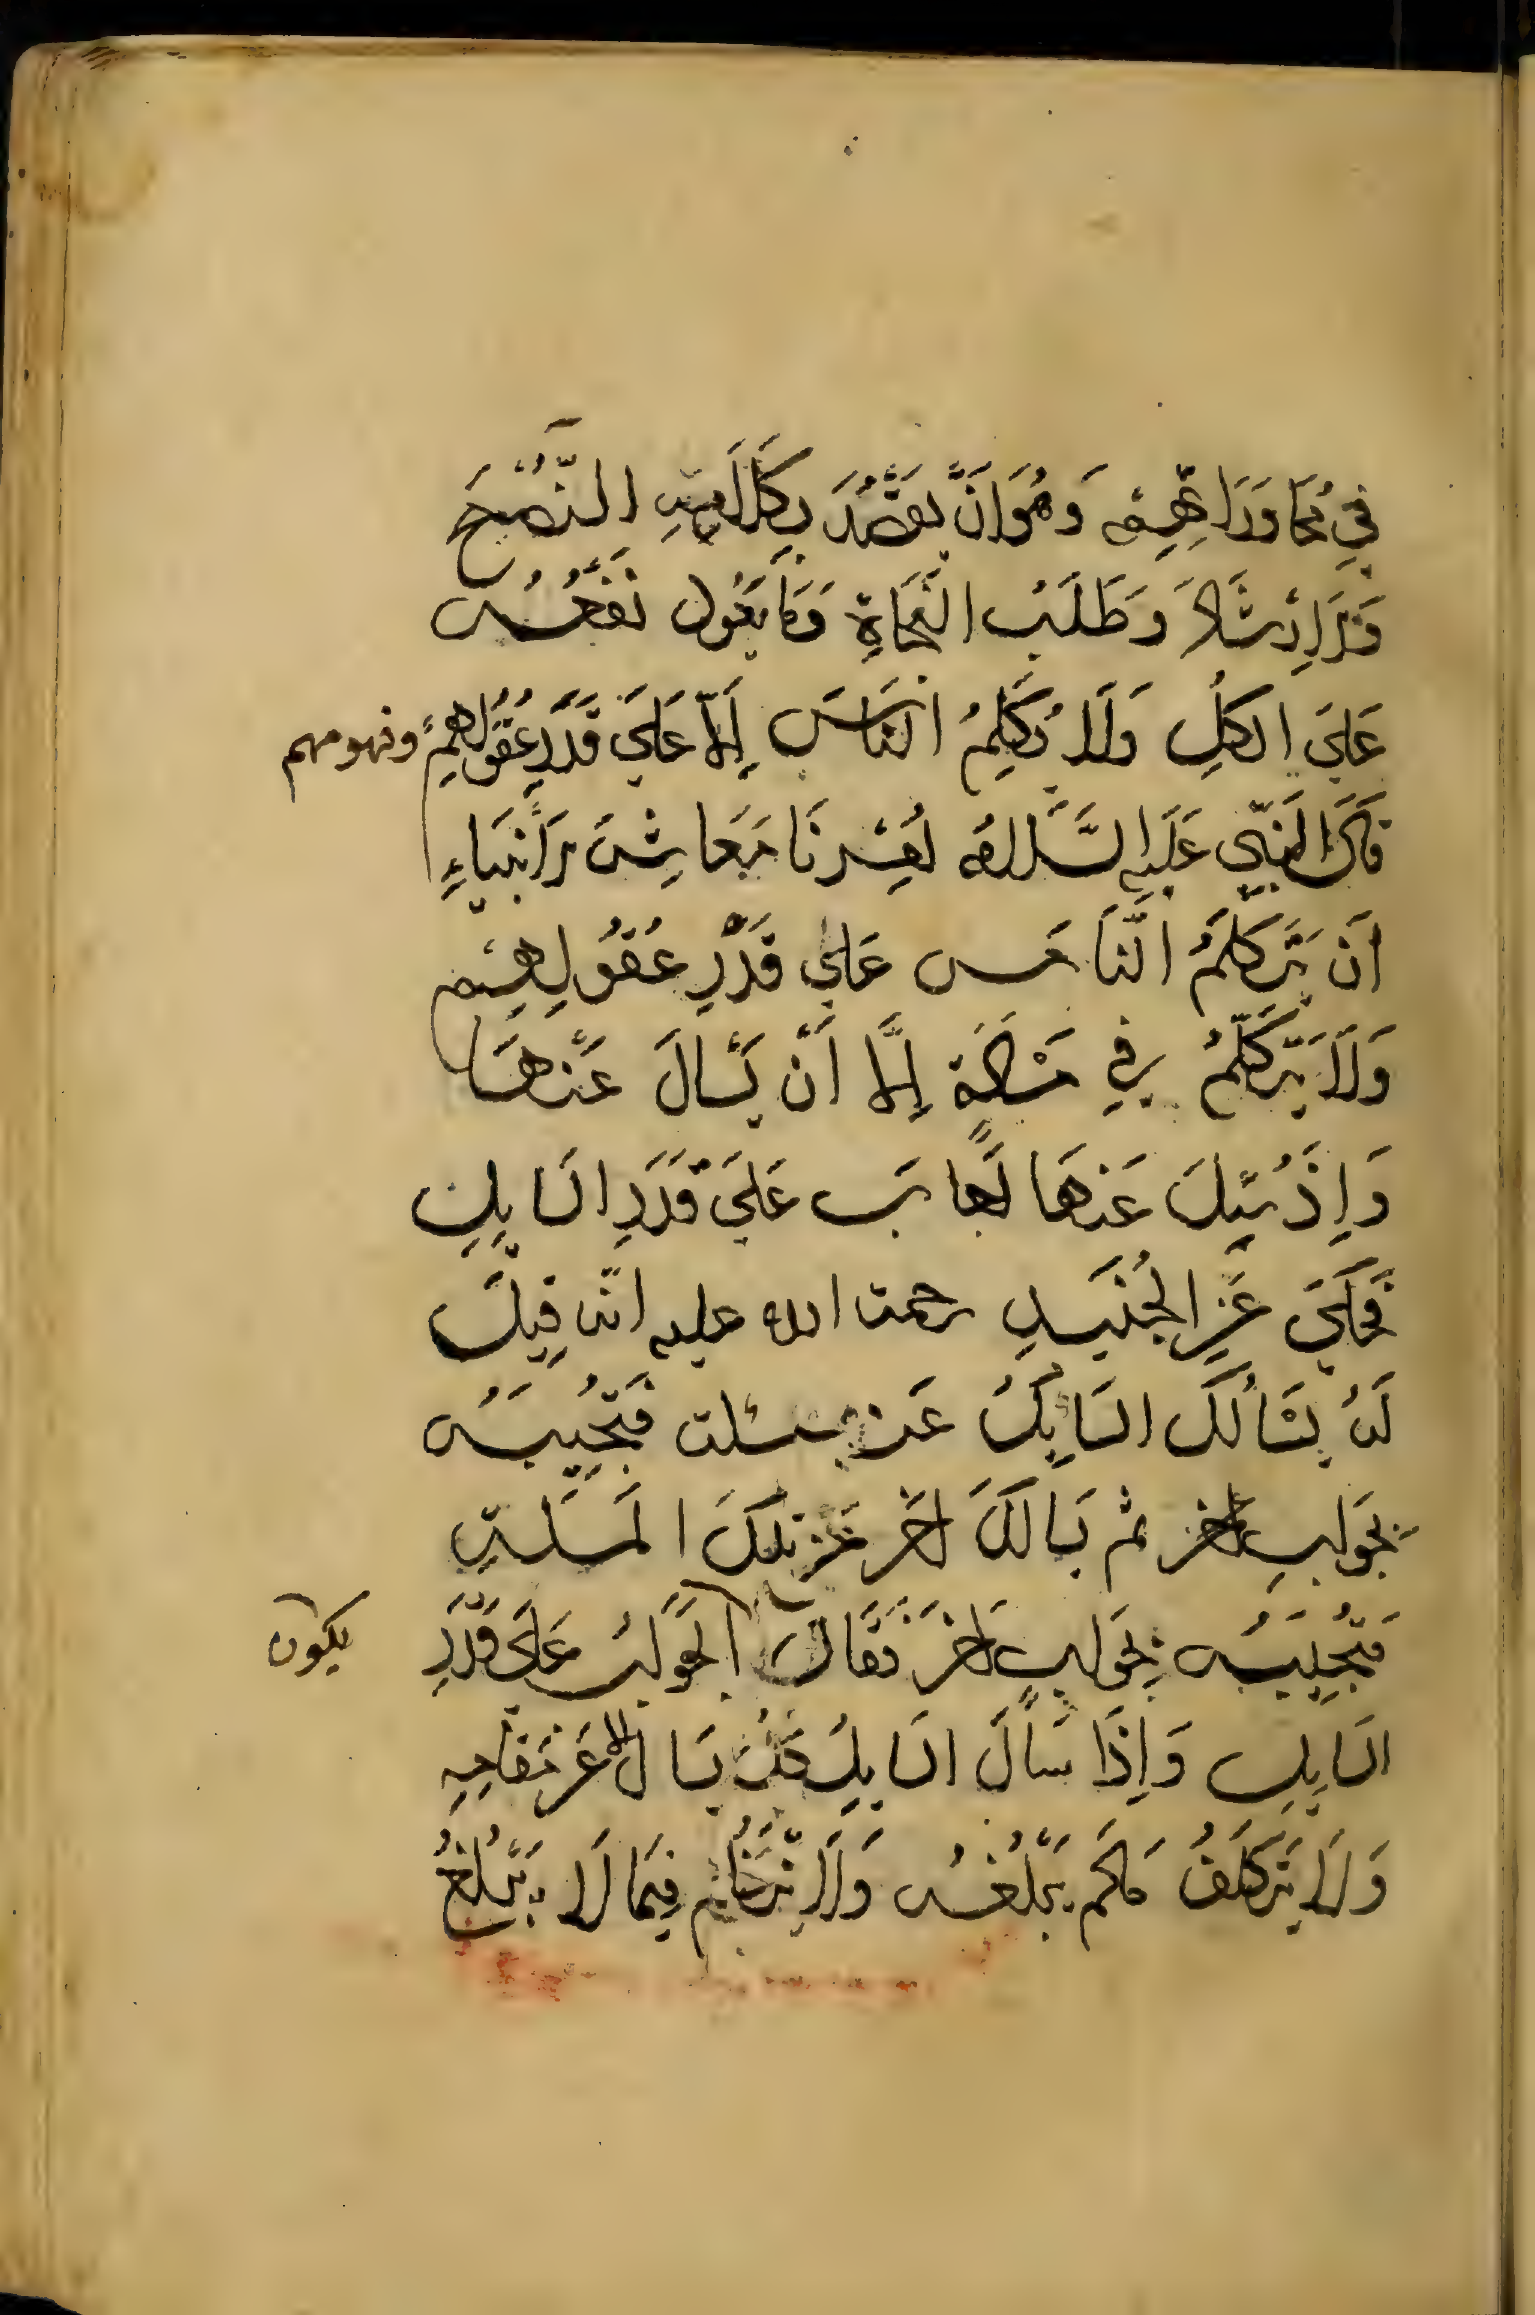 في محاوراتهم وهو ان يقصد بكلامه النصح
والارشاد وطلب النجاة وما يعول نفعه
على الكل ولا يكلم الناس إلا على قدر عقولهم وفهومهم
قال النبي عليه السلام امرنا معاشر الانبياء
أن نتكلم الناس على قدر عقولهم
ولا يتكلم في مسئلة إلا أن يسأل عنها
وإذ سئل عنها اجاب على قدر السايل
فحكي عن الجنيد رحمت الله عليه انه قيل
له يسألك السايل عن مسئلت فتجيبه
بجواب ثم يسالك اخر عن تلك المسلة
فتجيبه بجواب اخر فقال الجواب على قدر يكون
السايل وإذا سأل السايل يسال عن مقامه
ولا يتكلف مالم يبلغه ولا يتكلم فيما لا يبلغ